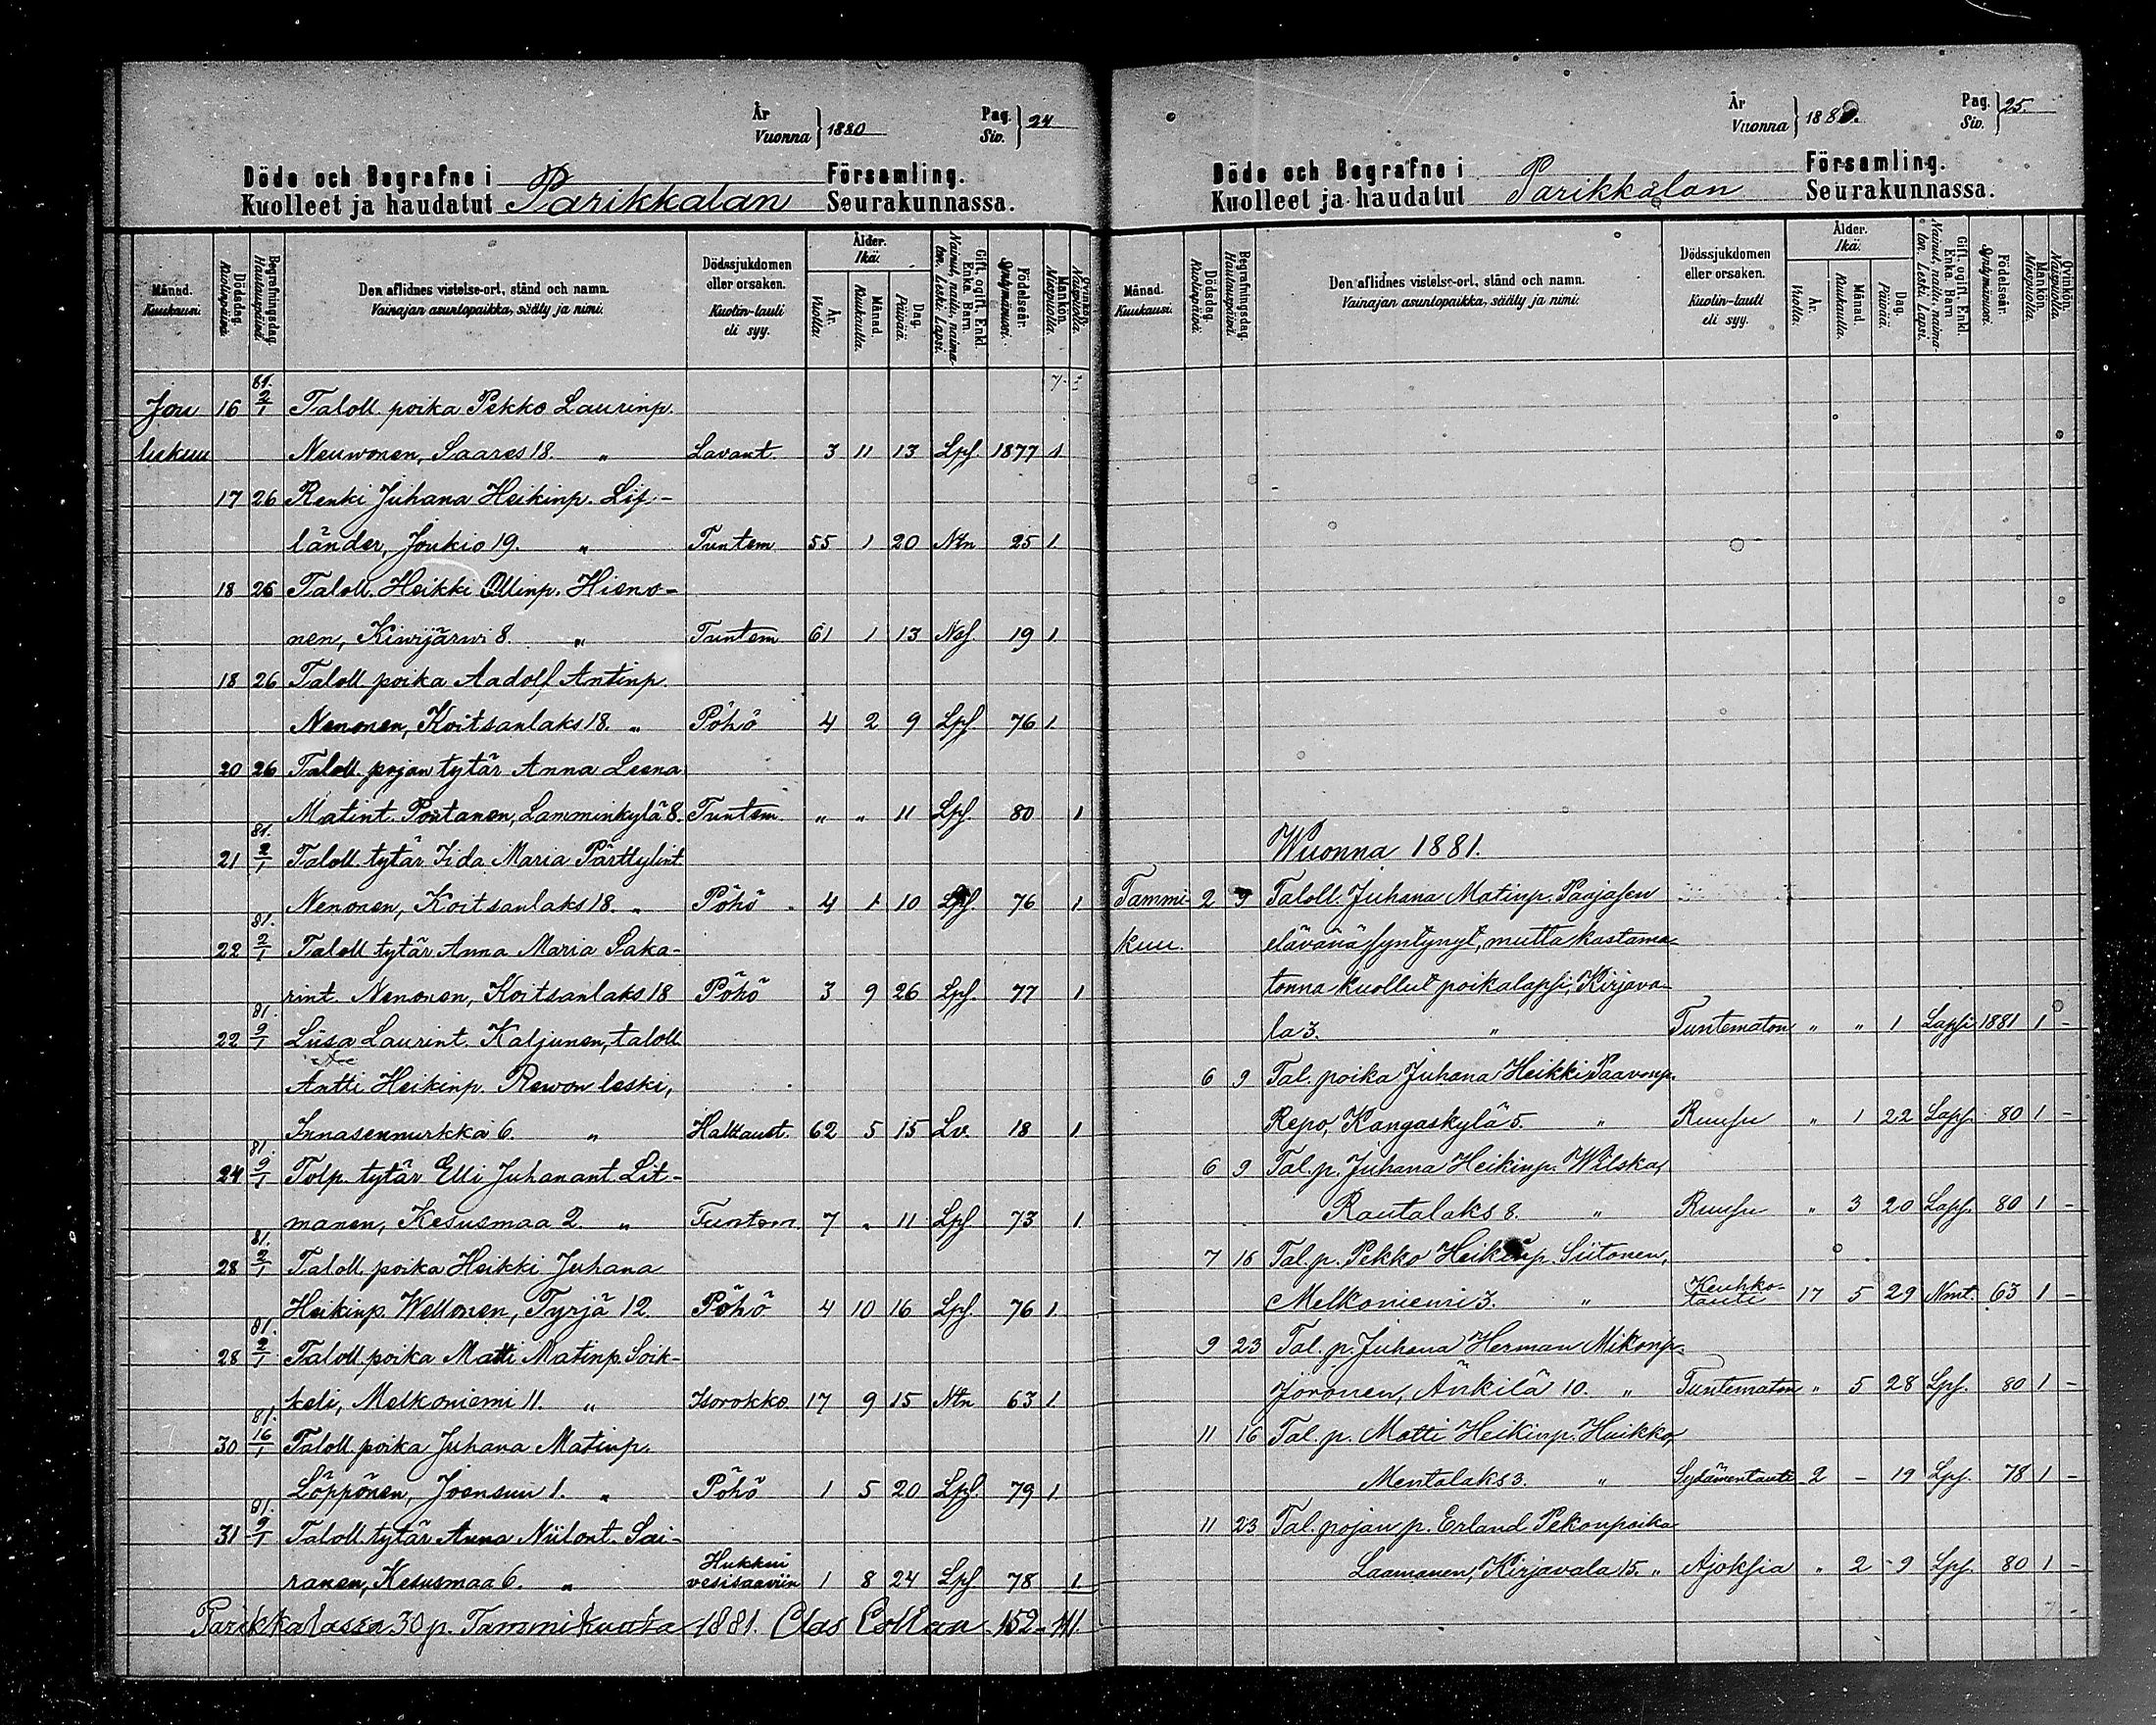 År
Vuonna } 1880
Pag.
Siv. } 24
Döde och Begrafne i Församling.
Kuolleet ja haudatut Parikkalan Seurakunnassa.
Månad. Kuukausi.
Dödsdag. Kuolinpäivä.
Begrafningsdag. Hautauspäivä.
Den aflidnes vistelse-ort, stånd och namn.
Vainajan asuntopaikka, sääty ja nimi.
Dödssjukdomen eller orsaken.
Kuolin-tauti eli syy.
Ålder. Ikä.
År. Vuotta.
Månad. Kuukautta.
Dag. Päivää.
Gift, ogift. Enkl. Enka. Barn.
Nainut, naitu, naimaton. Leski. Lapsi.
Födelseår. Syntymävuosi.
Mankön. Miespuolta.
Qvinkön. Naispuolta.
81.
Jou 16 2/1 Taloll. poika Pekko Laurinp.
lukuu Neuwonen, Saares 18. " Lavant. 3 11 13 Lps. 1877 1
17 26 Renki Juhana Heikinp. Lif-
länder, Joukio 19. " Tuntem 55 1 20 Ntn 25 1.
18 26 Taloll. Heikki Ollinp. Hieno-
nen, Kiwijärwi 8. " Tuntem 61 1 13 Nas. 19 1.
18 26 Taloll poika Aadolf Antinp.
Nenonen, Koitsanlaks 18. " Pöhö 4 2 9 Lps. 76 1.
20 26 Taloll. pojan tytär Anna Leena
Matint. Poutanen, Lamminkylä 8. Tuntem. " " 11 Lps. 80 1
81.
21 2/1 Taloll. tytär Iida Maria Pärttylint
Nenonen, Koitsanlaks 18. " Pöhö 4 1 10 Lps. 76 1
81.
22 2/1 Taloll tytär Anna Maria Saka-
rint. Nenonen, Koitsanlaks 18 Pöhö 3 9 26 Lps. 77 1
81.
22 9/1 Liisa Laurint. Kaljunen, taloll
Antti Heikinp. Rewon leski,
Innasennurkka 6. " Halvaust. 62 5 15 Lv. 18 1
81.
24 9/1 Tolp. tytär Elli Juhanant. Lit-
manen, Kesusmaa 2. " Tuntem. 7 " 11 Lps 73 1.
81.
28 2/1 Taloll. poika Heikki Juhana
Heikinp. Wellonen, Tyrjä 12. Pöhö 4 10 16 Lps. 76 1.
81.
28 2/1 Taloll poika Matti Matinp. Soik-
keli, Melkoniemi 11. " Isorokko. 17 9 15 Ntn 63 1.
81.
30 16/1 Taloll. poika Juhana Matinp.
Löppönen, Joensuu 1. " Pöhö 1 5 20 Lps. 79 1
81.
31 9/1 Taloll. tytär Anna Niilont. Sai-
ranen, Kesusmaa 6. " Hukkui vesisaaviin 1 8 24 Lps 78 1
Parikkalassa 30 p. Tammikuuta 1881. Clas Collan 152 - 141.
År
Vuonna } 1880.
Pag.
Siv. } 25.
Döde och Begrafne i Församling.
Kuolleet ja haudatut Parikkalan Seurakunnassa.
Månad. Kuukausi.
Dödsdag. Kuolinpäivä.
Begrafningsdag. Hautauspäivä.
Den aflidnes vistelse-ort, stånd och namn.
Vainajan asuntopaikka, sääty ja nimi.
Dödssjukdomen eller orsaken.
Kuolin-tauti eli syy.
Ålder. Ikä.
År. Vuotta.
Månad. Kuukautta.
Dag. Päivää.
Gift, ogift. Enkl. Enka. Barn
Nainut, naitu, naimaton. Leski. Lapsi.
Födelseår. Syntymävuosi.
Mankön. Miespuolta.
Qvinkön. Naispuolta.
Wuonna 1881.
Tammi 2 9 Taloll. Juhana Matinp. Paajasen
kuu. elävänä syntynyt, mutta kastama-
tonna kuollut poikalapsi, Kirjava-
la 3. " Tuntematon " " 1 Lapsi 1881 1 -
6 9 Tal. poika Juhana Heikki Paavonp.
Repo, Kangaskylä 5. " Ruusu " 1 22 Laps. 80 1 -
6 9 Tal. p. Juhana Heikinp. Wilska,
Rautalaks 8. " Ruusu " 3 20 Laps. 80 1 -
7 16 Tal. p. Pekko Heikinp. Siitonen,
Melkoniemi 3. " Keuhko-tauti 17 5 29 Nmt. 63 1 -
9 23 Tal. p. Juhana Herman Mikonp.
Joronen, Änkilä 10. " Tuntematon " 5 28 Lps. 80 1 -
11 16 Tal. p. Matti Heikinp. Huikko,
Mentalaks 3. " Sydämentauti 2 - 19 Lps. 78 1 -
11 23 Tal. pojan p. Erland Pekonpoika
Laamanen, Kirjavala 15. " Ajoksia " 2 9 Lps. 80 1 -